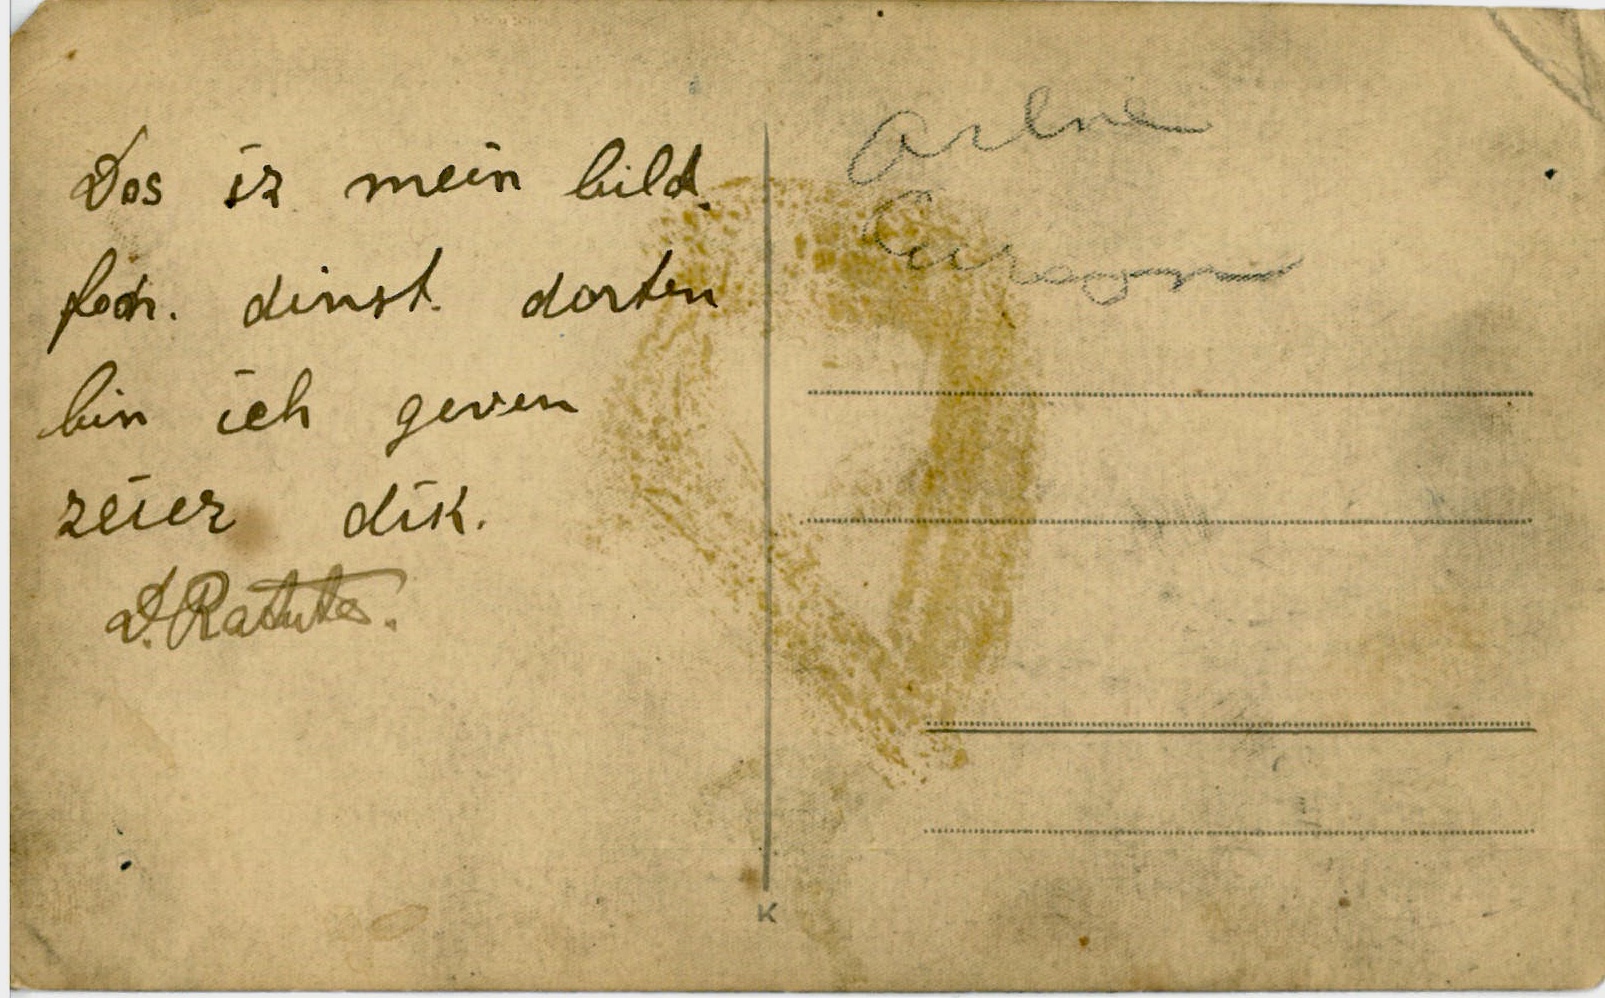 Dos iz mein bild.
fon. dinst. dorten
bin ich geven
zeier dik.
D. Ratute.
Arlne
Curegyn
K